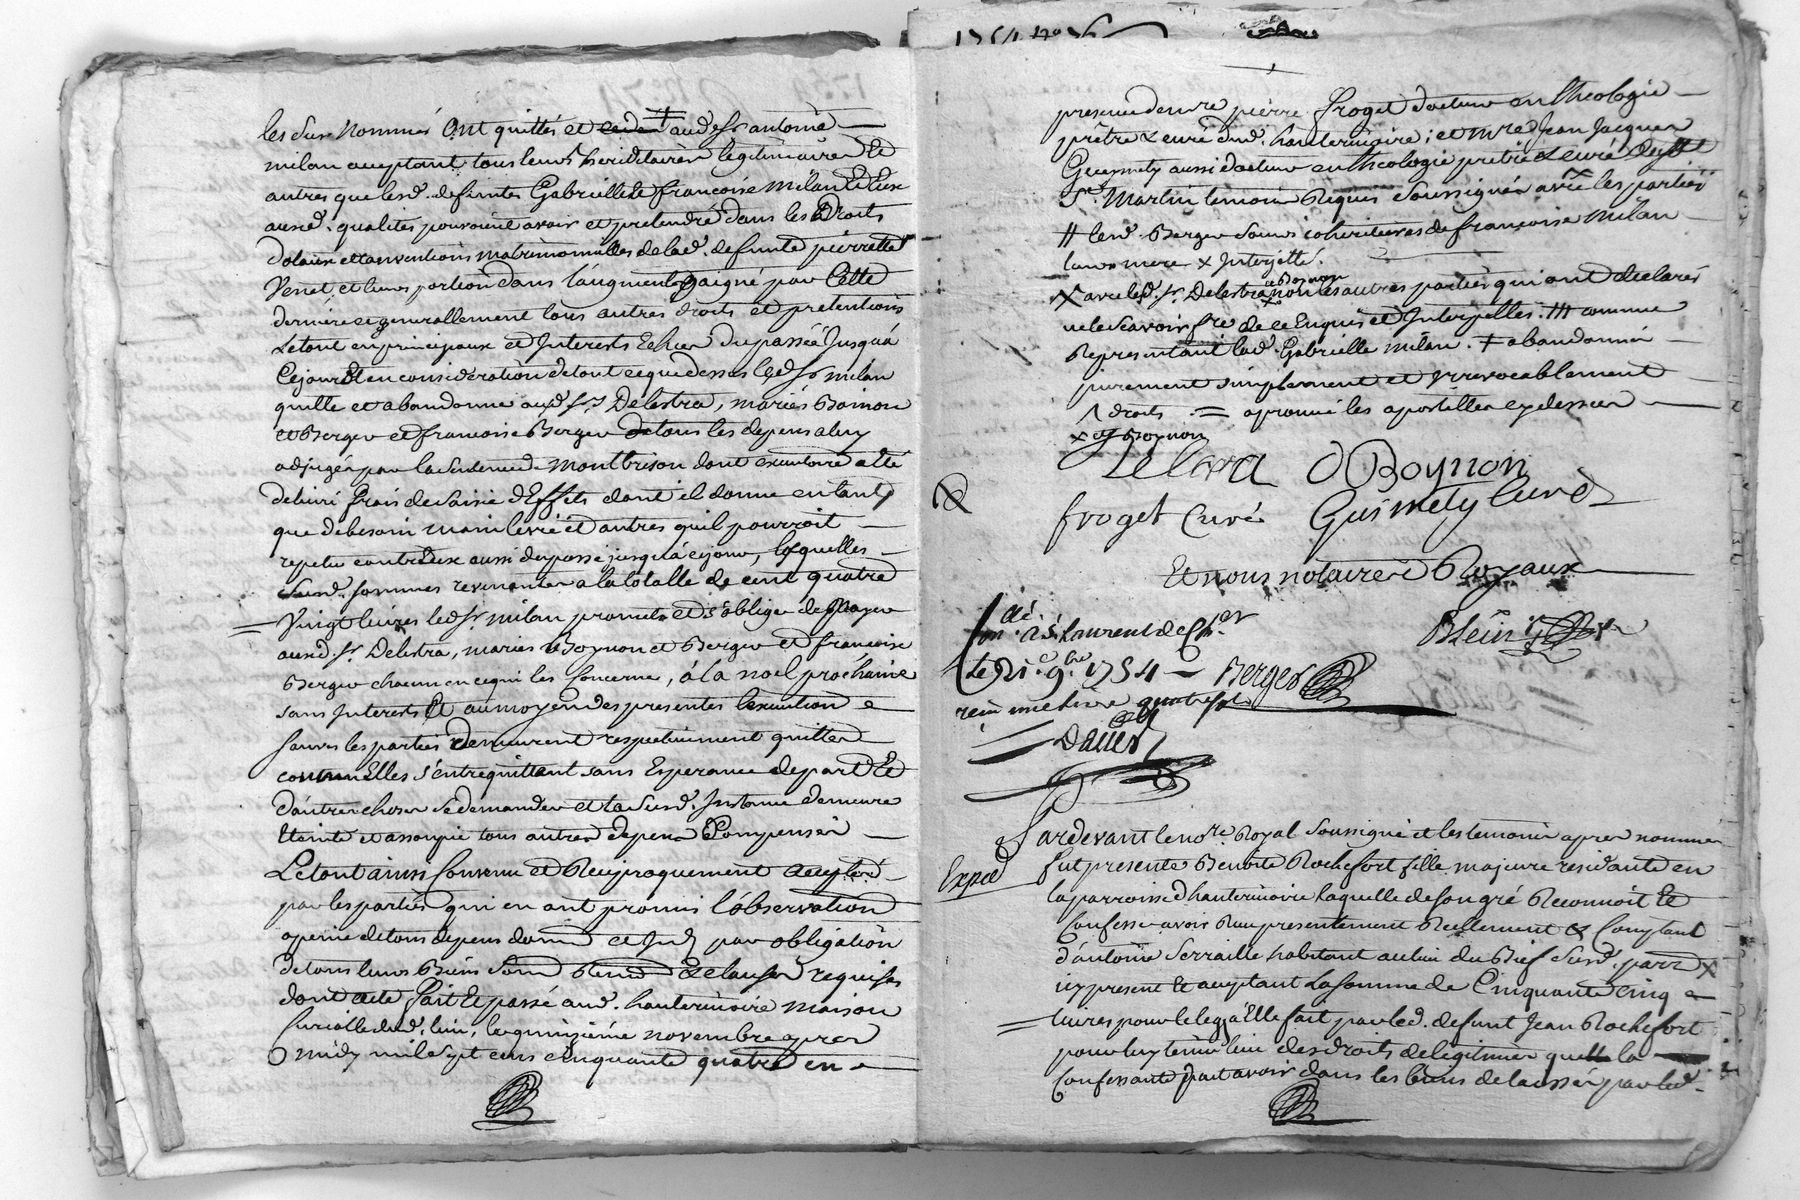 les sus nommés ont quittés et cedé ‡ aud. sr antoine
milan acceptant tous leurs hereditaires legitimaires Et
autres que lesd. defuntes Gabrielle Et francoise milan Et Eux
auxd. qualités pouvoient avoir et pretendre dans les Droits
dotaux et conventions matrimonialles de lad. defunte pierrette
Verret, et leurs portion dans l'augment gaigné par Cette
derniere et generallement tous autres droits et pretentions
Le tout en principaux et Interests Echus du passée Jusqu'à
Ce jour Et en consideration de tout ce que dessus led. sr milan
quitte et abandonne auxd. srs Delestra, mariés Boinon
et Berger et francoise Berger de tous les depens a luy
adjugés par la Sentence de Montbrison dont executoire a été
delivré frais de saisie d'Effets dont il donne entant
que de besoin main levée et autres qu'il pourroit
repeter contr'Eux aussi du passé jusqu'à ce jour, lesquelles
susd. sommes revenantes a la totalle de cent quatre
Vingt livres led. sr milan promet et s'oblige de payer
auxd. sr Delestra, mariés Boynon et Berger et francoise
Berger chacun en ce qui les Concerne, à la noel prochaine
sans Interests Et au moyen des presentes l'execution
sauves les parties demeurent respectivement quittes
comm'Elles s'entrequittent sans Esperance de part Et
d'autres choses se demander et la susd. Instance demeure
Eteinte et assoupie tous autres depens Compensés
Le tout ainsy Convenu et Reciproquement accepté
par les parties qui en ont promis l'observation
a peine de tous depens dom. et Int. par obligation
de tous leurs Biens Soum. Renon. Et clauses requises
dont acte fait Et passé aud. hauterivoire maison
Curialle dud. lieu, le quinzieme novembre apres
midy mil sept cens cinquante quatre en
1754
presence de mre pierre froget docteur en theologie
prêtre & curé dud. hauterivoire; et mre Jean Jacques
Guesmety aussi docteur en theologie prêtre & curé de
St. Martin temoins Requis soussignés avec les parties
# lesd. Berger soeurs coheritieres de francoise Milan
leurs mere x Interjette.
x avec led. sr Delestra et Boynon non les autres parties qui ont declarés
ne le scavoir fre de ce Enquis et Interpellés. ## comme
Representant lad. Gabrielle milan. ‡ abandonné
purement simplement et irrevocablement
^ droits = aprouvé les apostilles cy dessus
x et Boynon
Delestra O Boynon
froget Curé Guismety Curé
Et nous notaire Royaux
Con.lé à St. Laurent de Ch.
Le 21. 9bre 1754 — Berger
recu une livre quatre sols
Daller
Pardevant le nore. Royal soussigné et les temoins apres nommés
Exped.
fut presente Benoite Rochefort fille majeure residante en
la parroisse d'hauterivoire laquelle de son gré Reconnoit Et
Confesse avoir Recu presentement Reellement & Comptant
d'antoine Serraille habitant au lieu du Bief susd. parr. x
icy present Et acceptant La somme de Cinquante cinq
livres pour le legs à Elle fait par led. defunt Jean Rochefort
pour luy tenir lieu des droits de legitimes que la
Confessante peut avoir dans les biens delaissés par led.